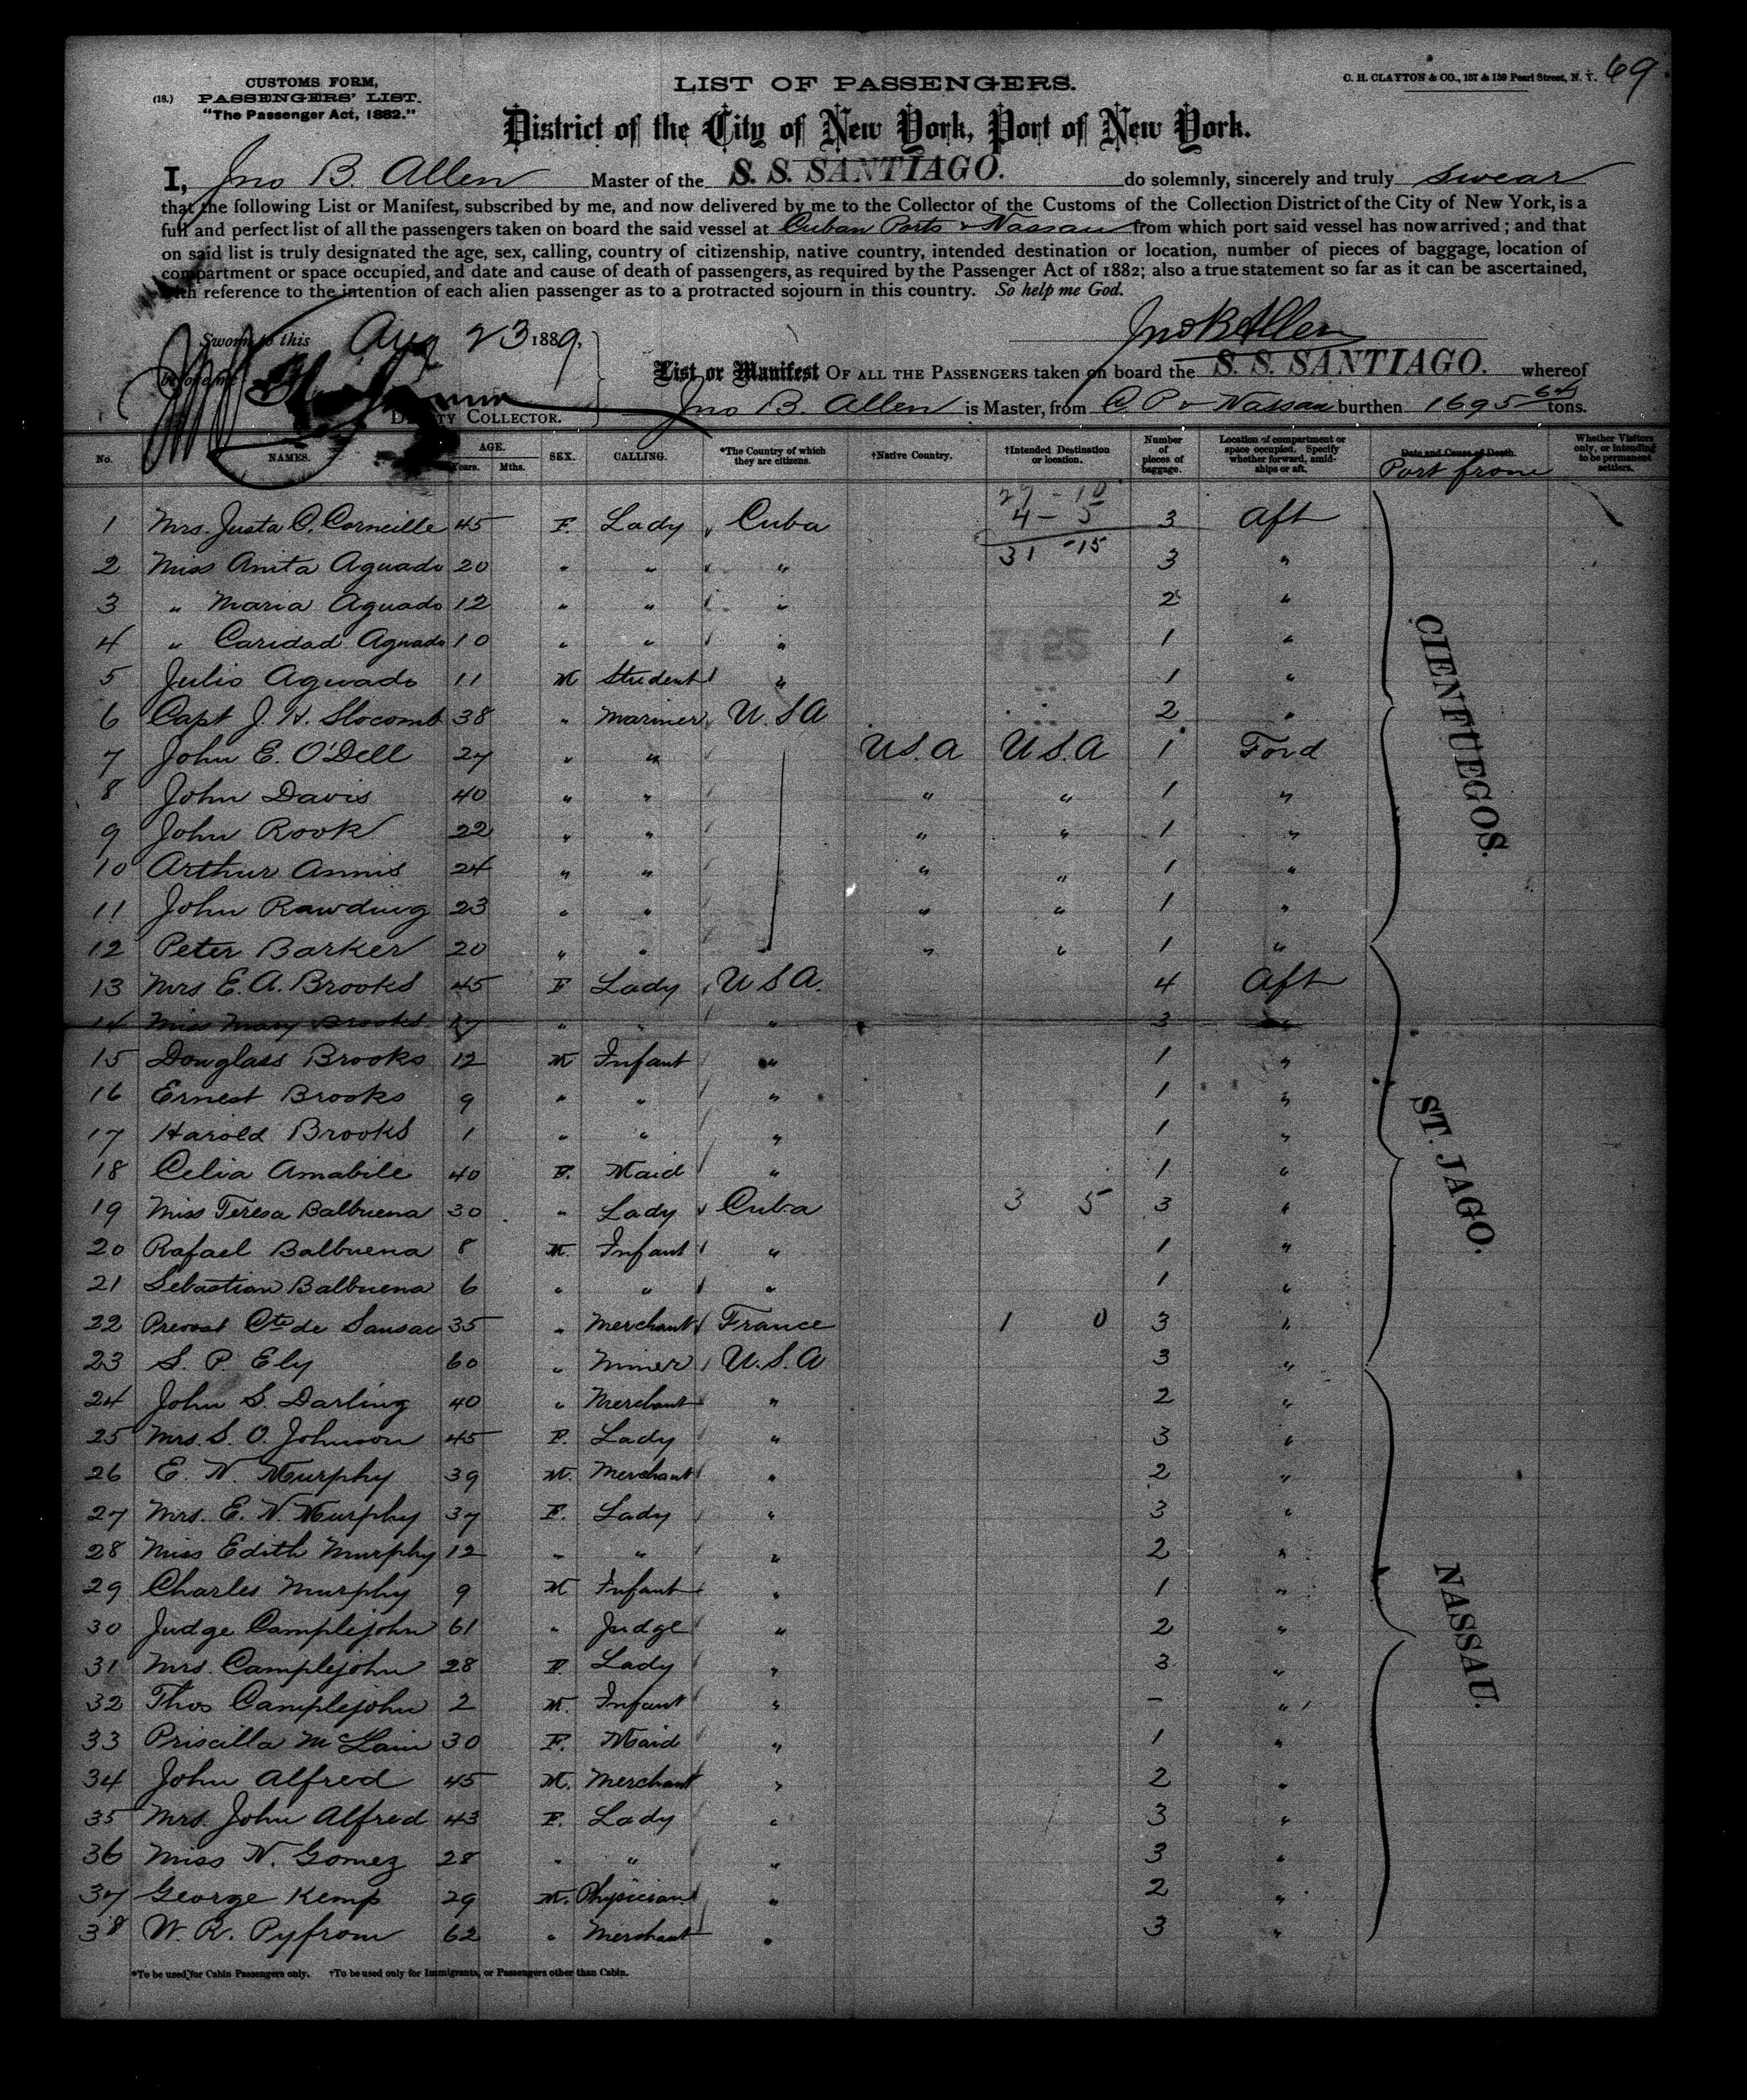 69
CUSTOMS FORM,
(18.) PASSENGERS' LIST.
"The Passenger Act, 1882."
LIST OF PASSENGERS.
C. H. CLAYTON & CO., 157 & 159 Pearl Street, N. Y.
District of the City of New York, Port of New York.
I, Jno B. Allen Master of the S. S. SANTIAGO. do solemnly, sincerely and truly swear
that the following List or Manifest, subscribed by me, and now delivered by me to the Collector of the Customs of the Collection District of the City of New York, is a
full and perfect list of all the passengers taken on board the said vessel at Cuban Ports & Nassau from which port said vessel has now arrived; and that
on said list is truly designated the age, sex, calling, country of citizenship, native country, intended destination or location, number of pieces of baggage, location of
compartment or space occupied, and date and cause of death of passengers, as required by the Passenger Act of 1882; also a true statement so far as it can be ascertained,
with reference to the intention of each alien passenger as to a protracted sojourn in this country. So help me God.
Sworn to this Aug 23 1889,
Jno B Allen
before me
List or Manifest OF ALL THE PASSENGERS taken on board the S. S. SANTIAGO. whereof
DEPUTY COLLECTOR.
Jno B. Allen is Master, from C P & Nassau burthen 1695 64 tons.
No. NAMES. AGE. Years. Mths. SEX. CALLING. *The Country of which they are citizens. †Native Country. †Intended Destination or location. Number of pieces of baggage. Location of compartment or space occupied. Specify whether forward, amidships or aft. Date and Cause of Death. Port from Whether Visitors only, or intending to be permanent settlers.
29 - 10
4 - 5
31 - 15
1 Mrs. Justa C. Corneille 45 F. Lady Cuba 3 Aft
2 Miss Anita Aguado 20 " " " 3 "
3 " Maria Aguado 12 " " " 2 "
4 " Caridad Aguado 10 " " " 1 "
5 Julio Aguado 11 M Student " 1 "
6 Capt J. H. Slocomb 38 " Mariner U.S.A 2 "
7 John E. O'Dell 27 " " U.S.A U.S.A 1 Ford
8 John Davis 40 " " " " 1 "
9 John Rook 22 " " " " 1 "
10 Arthur Annis 24 " " " " 1 "
11 John Rawding 23 " " " " 1 "
12 Peter Barker 20 " " " " 1 "
CIENFUEGOS.
13 Mrs E. A. Brooks 45 F Lady U.S.A. 4 Aft
14 Miss Mary Brooks 17 " " " 3 "
15 Douglass Brooks 12 M Infant " 1 "
16 Ernest Brooks 9 " " " 1 "
17 Harold Brooks 1 " " " 1 "
18 Celia Amabile 40 F. Maid " 1 "
19 Miss Teresa Balbuena 30 " Lady Cuba 3 5 3 "
20 Rafael Balbuena 8 M. Infant " 1 "
21 Sebastian Balbuena 6 " " " 1 "
22 Prevost Cte de Sansac 35 " Merchant France 1 0 3 "
23 S. P. Ely 60 " Miner U.S.A 3 "
ST. JAGO.
24 John S. Darling 40 " Merchant " 2 "
25 Mrs. S. O. Johnson 45 F. Lady " 3 "
26 E. N. Murphy 39 M. Merchant " 2 "
27 Mrs. E. N. Murphy 37 F. Lady " 3 "
28 Miss Edith Murphy 12 " " " 2 "
29 Charles Murphy 9 M Infant " 1 "
30 Judge Camplejohn 61 " Judge " 2 "
31 Mrs. Camplejohn 28 F. Lady " 3 "
32 Thos Camplejohn 2 M. Infant " – "
33 Priscilla McLain 30 F. Maid " 1 "
34 John Alfred 45 M. Merchant " 2 "
35 Mrs. John Alfred 43 F. Lady " 3 "
36 Miss N. Gomez 28 " " " 3 "
37 George Kemp 29 M. Physician " 2 "
38 W. R. Pyfrom 62 " Merchant " 3 "
NASSAU.
*To be used for Cabin Passengers only. †To be used only for Immigrants, or Passengers other than Cabin.